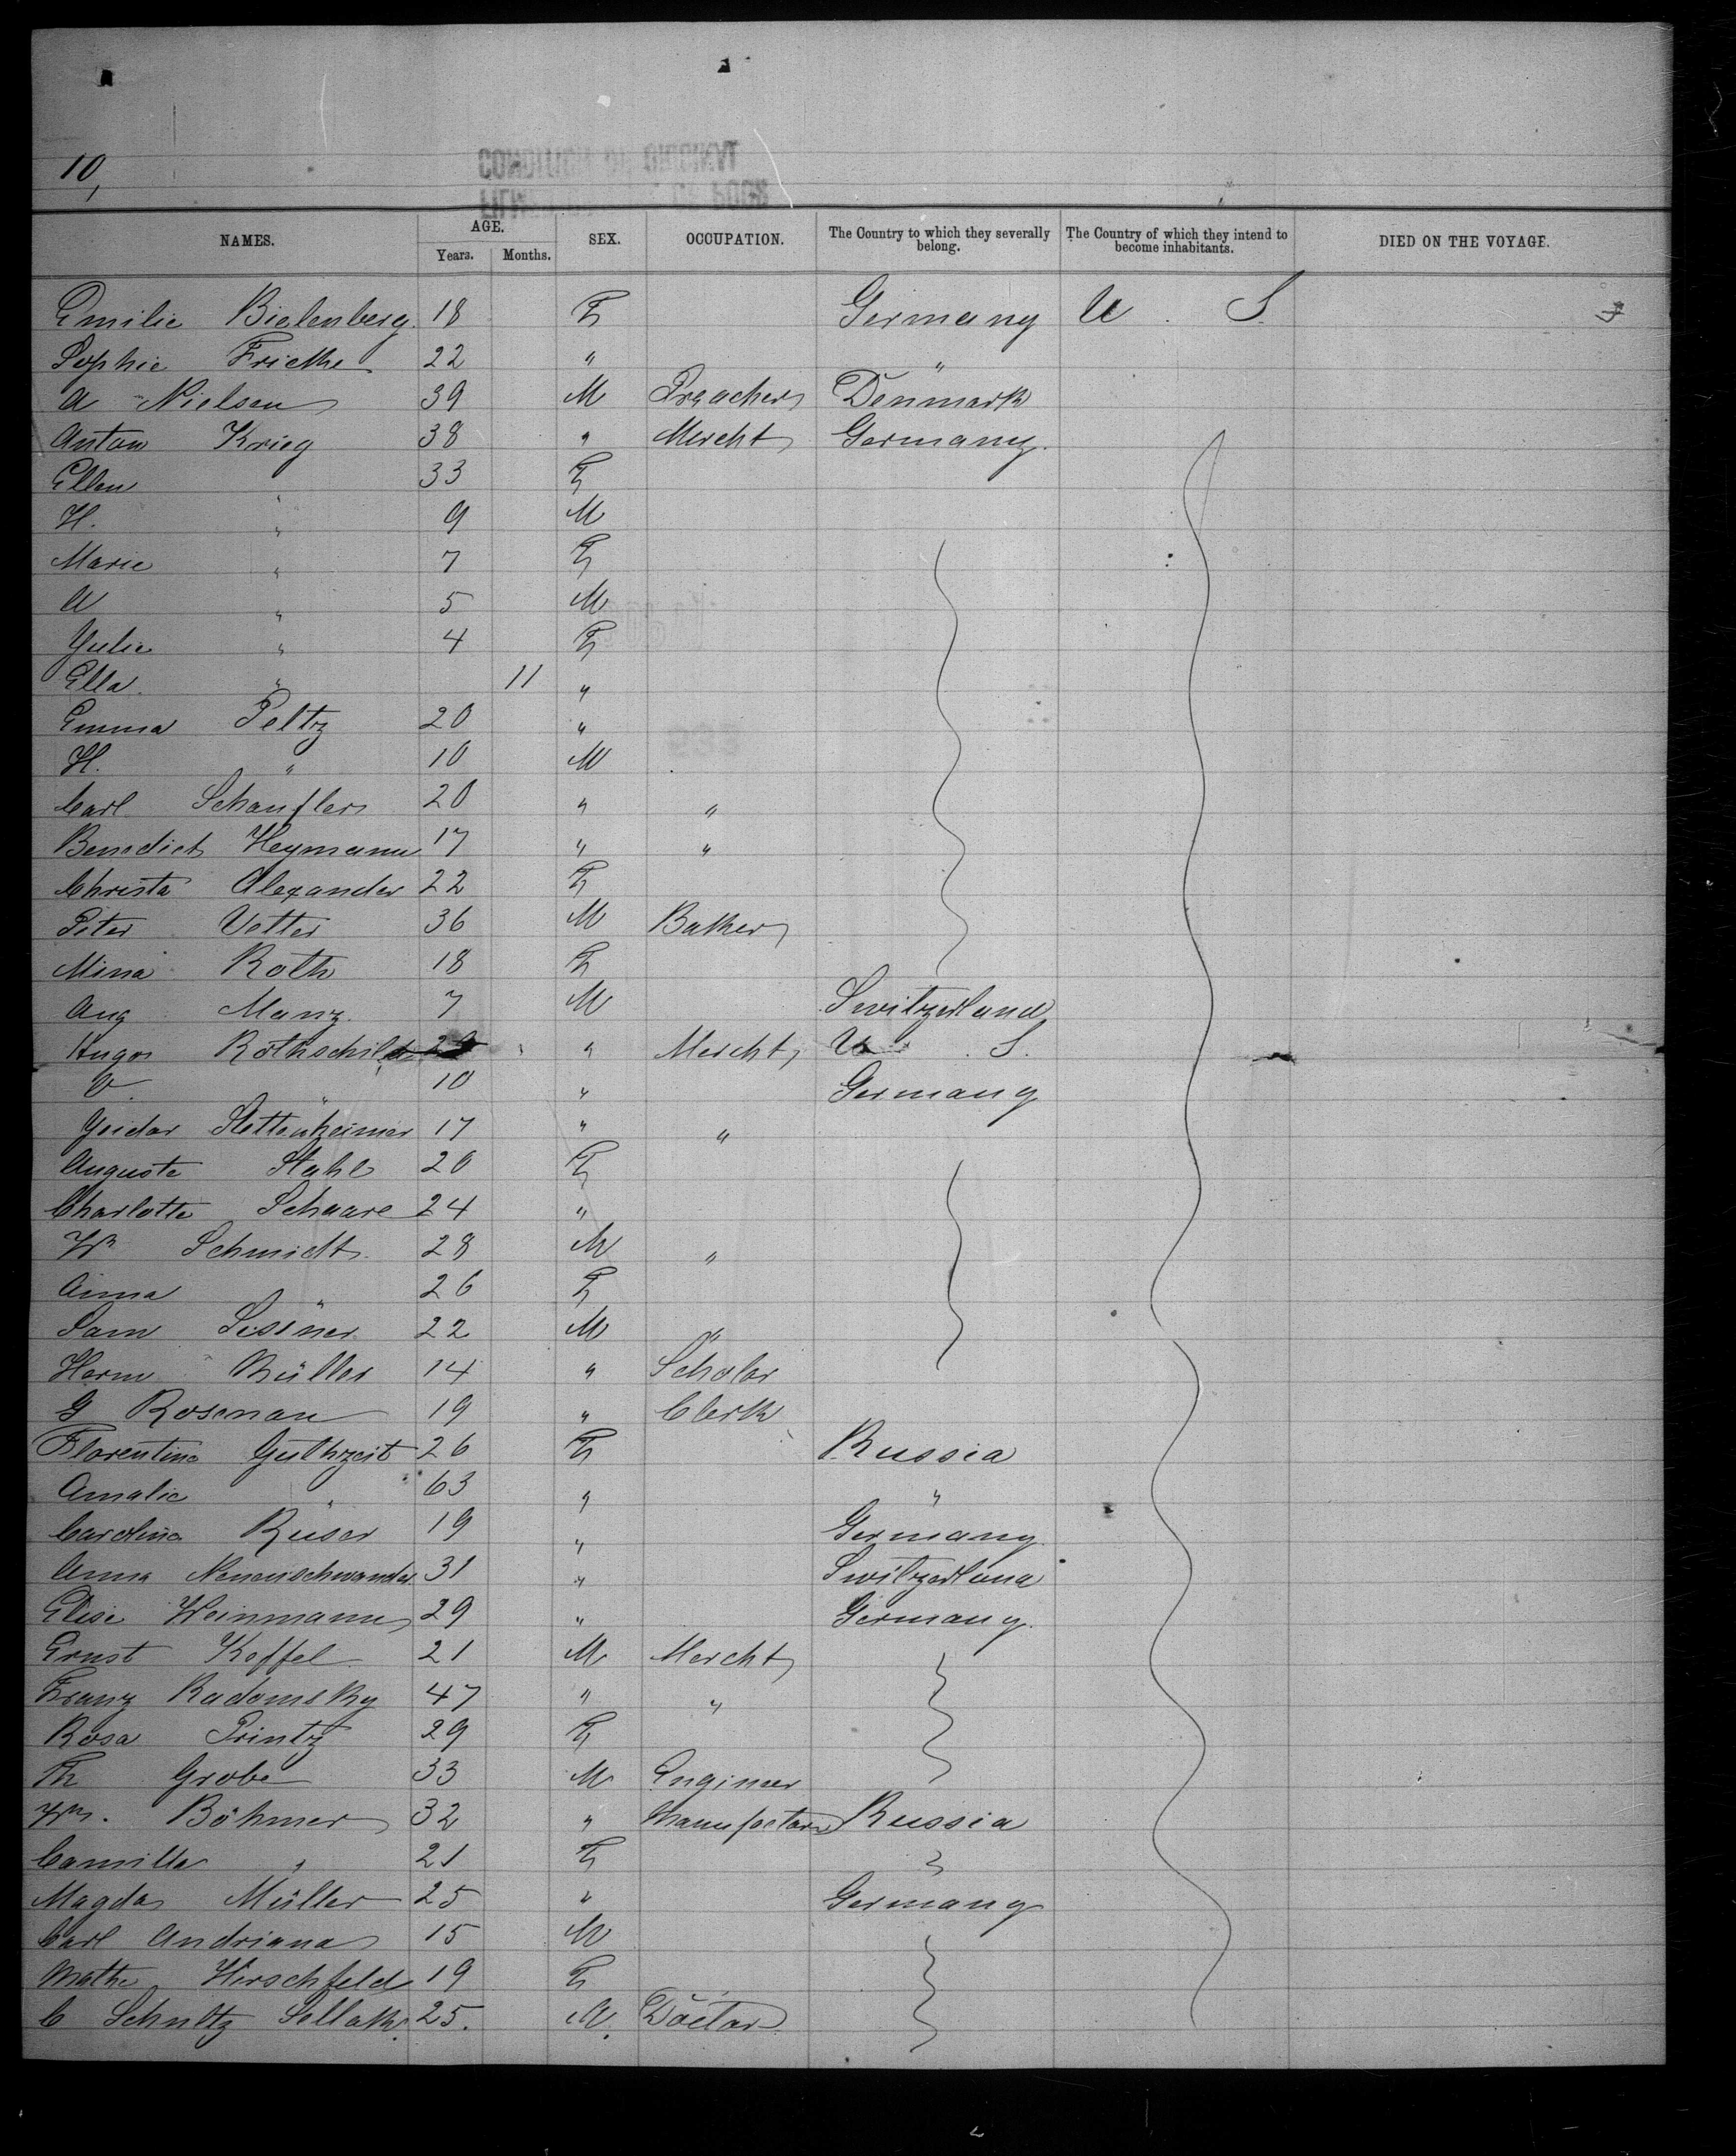 10,
NAMES. AGE. Years. Months. SEX. OCCUPATION. The Country to which they severally belong. The Country of which they intend to become inhabitants. DIED ON THE VOYAGE.
Emilie Bielenberg 18 F Germany U. S.
Sophie Fricke 22 " "
A Nielsen 39 M Preacher Denmark
Anton Krieg 38 " Mercht Germany.
Ellen " 33 F
H. " 9 M
Marie " 7 F
A " 5 M
Julie " 4 F
Ella " 11 "
Emma Peltz 20 "
H. " 10 M
Carl Schaufler 20 " "
Benedict Heymann 17 " "
Christa Alexander 22 F
Peter Vetter 36 M Baker
Mina Roth 18 F
Aug Manz 7 M Switzerland
Hugo Rothschild " Mercht U. S.
" 10 " Germany
Stettenheimer 17 " "
Auguste Stahl 20 F
Charlotte Schaare 24 "
Wm Schmidt 28 M "
Anna " 26 F
Sam 22 M "
Herm Büller 14 " Scholar
G Rosenau 19 " Clerk
Florentine Guthzeit 26 F Russia
Amalie " 63 " "
Carolina Ruser 19 " Germany.
Anna Neuenschwander 31 " Switzerland
Elise Weinmann 29 " Germany.
Ernst Koffel 21 M Mercht
Franz Radomsky 47 " "
Rosa Printz 29 F
Th Grobe 33 M Engineer
Wm. Böhmer 32 " Manufactor Russia
Camilla " 21 F "
Magda Müller 25 " Germany
Carl Andriana 15 M
Mathe Hirschfeld 19 F
C Schultz Sellak 25. M. Doctor